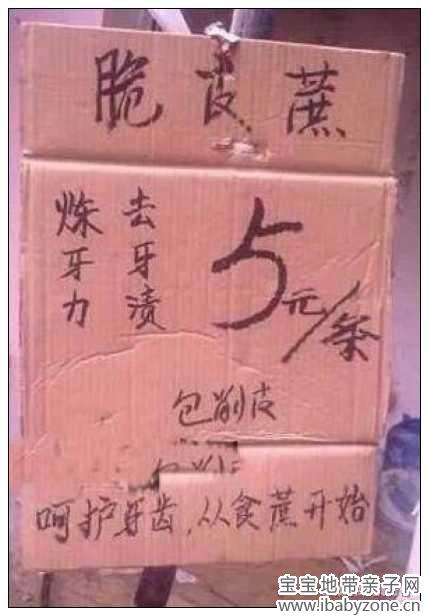 脆皮蔗
去牙渍
炼牙力
5元/条
包削皮
包削
呵护牙齿,从食蔗开始
宝宝地带亲子网
www.ibabyzone.cn